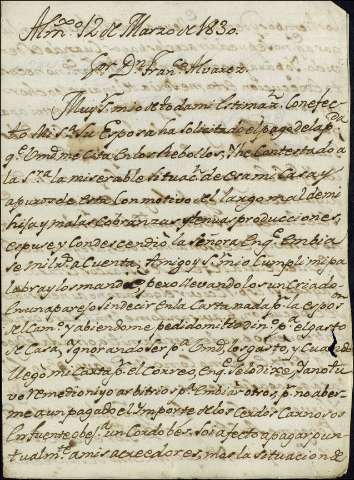 Alm.º 12 de Marzo de 1830.
S.or D.n Fran.co Alvarez.
Muy S.or mio de toda mi estimaz.n Con efec
to Mi S.ra su Esposa ha solicitado el pago de la p.da
q.e Vmd me cita en los Rebollos, Yhe Contestado a
la S.ra la miserable situaz.n de esa mi Casa y
apuros de esta Con motivo del largo mal de mi
hija y malas Cobranzas y tenuas producciones,
espuse y Condescendió la Señora En q.e embia
se mil r.s a Cuenta, Amigo y S.or mio Cumplí mi pa
labra y los mandé pero llevandolos un Criado
En un aparejo sin decir en la Carta nada p.a la espos.a
el Cam.o y abiendome pedido mitad in p.a el gasto
de Casa, ignorando ser p.a Vmd, los gastó, y Cuando
llego mi Carta p.r el Correo, En q.e selo dixe, Ya no tu
vo remedio ni yo arbitrio p.a Embiar otros, p.r no aber
me aun pagado el importe de los Cerdos Carnosos
En fuente obej.a un Cordobes. Soi afecto a pagar pun
tualm.te a mis acreedores, mas la situacion de